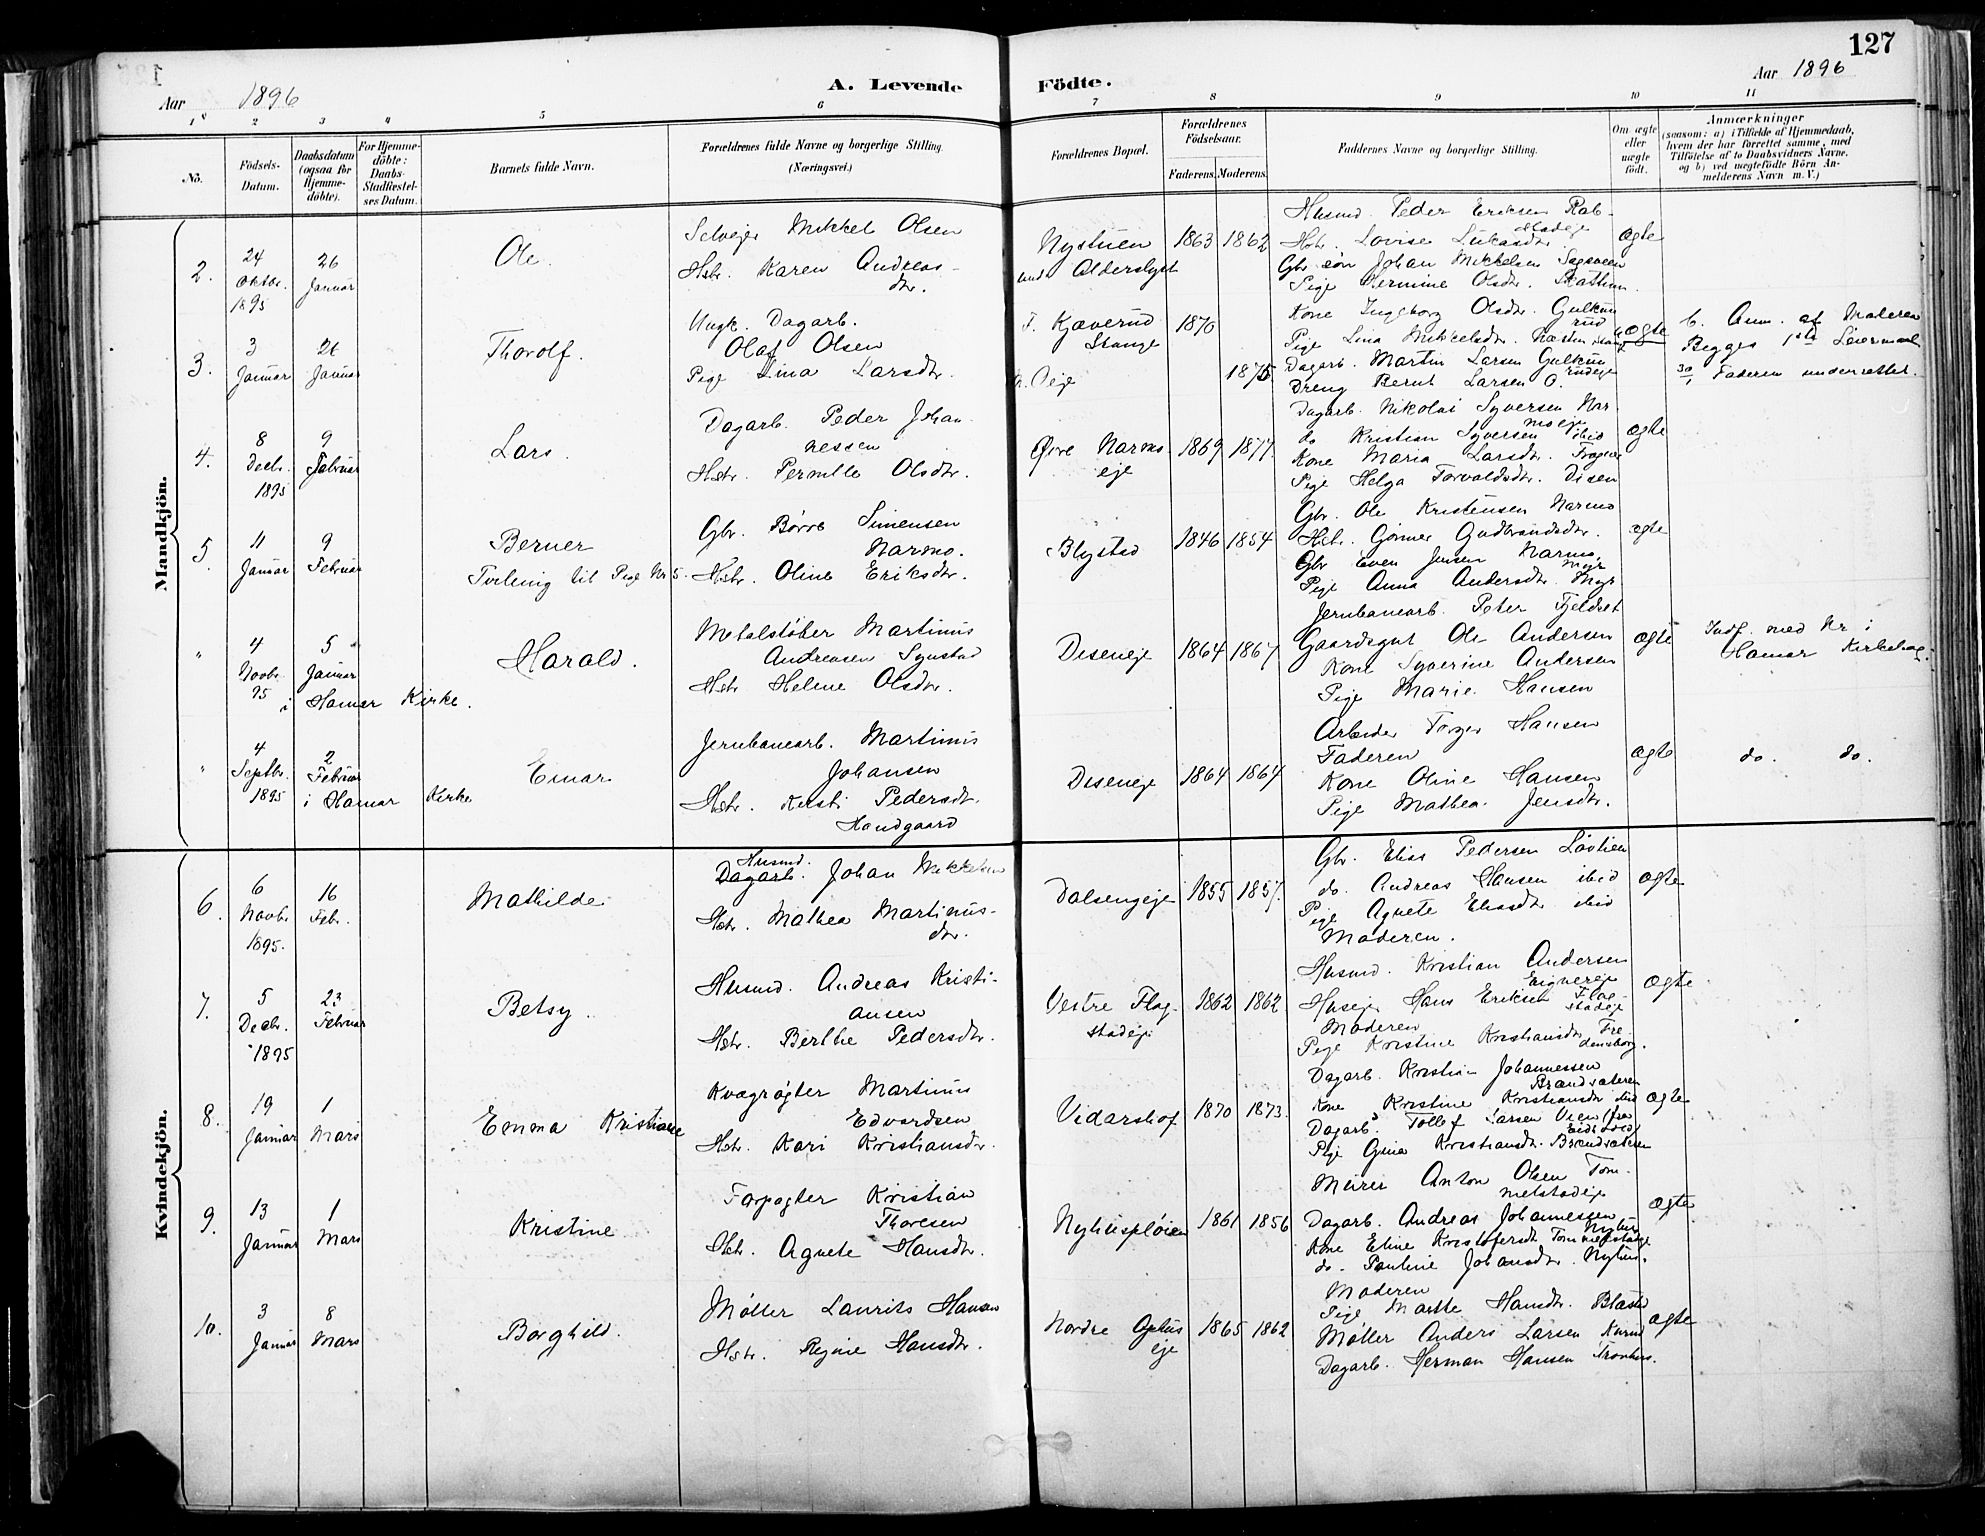 127
Aar 1896
A. Levende Födte.
Aar 1896
1 2 3 4 5 6 7 8 9 10 11
No.
Födsels-Datum.
Daabsdatum (ogsaa for Hjemmedöbte).
For Hjemmedöbte: Daabs-Stadfæstelses Datum.
Barnets fulde Navn.
Forældrenes fulde Navne og borgerlige Stilling. (Næringsvei.)
Forældrenes Bopæl.
Forældrenes Födselsaar.
Faderens. Moderens.
Faddernes Navne og borgerlige Stilling.
Om ægte eller uægte födt.
Anmærkninger
(saasom: a) i Tilfælde af Hjemmedaab, hvem der har forrettet samme, med Tilföielse af to Daabsvidners Navne. og b) ved uægtefödte Börn Anmelderens Navn m. V.)
Mandkjön.
2.
24 Oktbr. 1895
26 Januar
Ole.
Selveier Mikkel Olsen
Hstr. Karen Andreasdtr.
Nystuen und. Alderslyst
1863 1862
Husmd. Peder Eriksen Rabstadeje
Hstr. Lovise Lukasdtr.
Gbr. søn Johan Mikkelsen Sagveen
Pige Hermine Olsdtr.
ægte
3.
3 Januar
26 Januar
Thorolf.
Ungk. Dagarb.
Olaf Olsen
Pige Lina Larsdtr.
F. Kjæverud Stange
1870
1875
Kone Ingeborg Olsdtr. Gulkurud
Pige Lina Mikkelsdtr.
Dagarb. Martin Larsen Gulkurudeje
Dreng Bernt Larsen
uægte
b. Anm. af Moderen
Begges 1ste Leiermaal
30/1 Faderen underrettet.
4.
8 Decbr. 1895
9 Februar
Lars
Dagarb. Peder Johannessen
Hstr. Pernille Olsdtr.
Øvre Narmoeje
1869 1877
Dagarb. Nikolai Syversen Narmoeje
do Kristian Syversen ibid
Kone Maria Larsdtr.
Pige Helga Torvaldsdtr. Disen
ægte
5.
11 Januar
9 Februar
Berner
Tvilling til Pige Nr 5.
Gbr. Børre Simensen Narmo.
Hstr. Oline Eriksdtr.
Blystad
1846 1854
Gbr. Ole Kristensen Narmo
Hstr. Gørner Gudbrandsdtr.
Gbr Even Jensen Narmo
Pige Anna Andersdtr. Myr
ægte
"
4 Novbr 95
5 Januar
i Hamar Kirke.
Harald.
Metalstøber Martinus
Andreasen Synstad
Hstr Helene Olsdtr.
Diseneje
1864 1867
Jernbanearb. Peter Fjeldset
Gaardsgut Ole Andersen
Kone Syverine Andersen
Pige Marie Hansen
ægte
Indf. med Nr i
Hamar Kirkebog.
"
4 Septbr. 1895
2 Februar
i Hamar Kirke
Einar
Jernbanearb. Martinus
Johansen
Hstr. Kersti Pedersdtr.
Haudgaard
Diseneje
1864 1864
Arbeider Torger Hansen
Faderen
Kone Oline Hansen
Pige Mathea Jensdtr.
ægte
do. do.
Kvindekjön.
6.
6 Novbr 1895.
16 Febr.
Mathilde
Husmd.
Dagarb. Johan Mikkelsen
Hstr. Mathea Martinusdtr.
Dalsengeje
1855 1857.
Gbr. Elias Pedersen Løvlien
do. Andreas Hansen ibid
Pige Agnete Eliasdtr ibid
Moderen.
ægte
7.
5 Decbr. 1895
23 Februar
Betsy.
Husmd. Andreas Kristiansen
Hstr. Berthe Pedersdtr.
Vestre Flagstadeje
1862 1862
Husmd. Kristian Andersen
Husej. Hans Eriksen Flagstadeje
Moderen
Pige Kristine Kristiansdtr Fredensborg.
ægte
8.
19 Januar
1 Mars
Emma Kristiane
Kvægrøgter Martinus
Edvardsen
Hstr. Kari Kristiansdtr.
Vidarshof
1870 1873.
Dagarb. Kristian Johannessen
Brændsæteren
Kone Kristine Kristiansdtr ibid
Dagarb. Tollef Larsen Vien (fra Eidsvold)
Pige Gina Kristiansdtr. Brændsæteren
ægte
9.
13 Januar
1 Mars
Kristine
Forpagter Kristian
Thoresen
Hstr. Agnete Hansdtr.
Nyhuspløien
1861 1856
Meirer Anton Olsen Tommelstadeje
Dagarb. Andreas Johannessen Nyhus
Kone Eline Kristofersdtr Tommelstadeje
do. Pauline Johansdtr. Nyhus.
ægte
10.
3 Januar
8 Mars
Borghild.
Møller Laurits Hansen
Hstr. Regine Hansdtr.
Nordre Ophuseje
1865 1862
Moderen
Pige Marthe Hansdtr.
Møller Anders Larsen Kurud
Dagarb. Herman Hansen
ægte